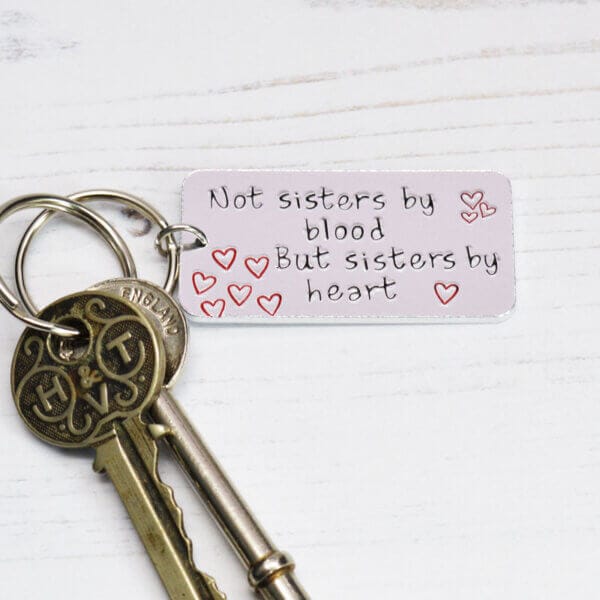 Not sisters by
blood
But sisters by
heart
ENGLAND
H & T
V